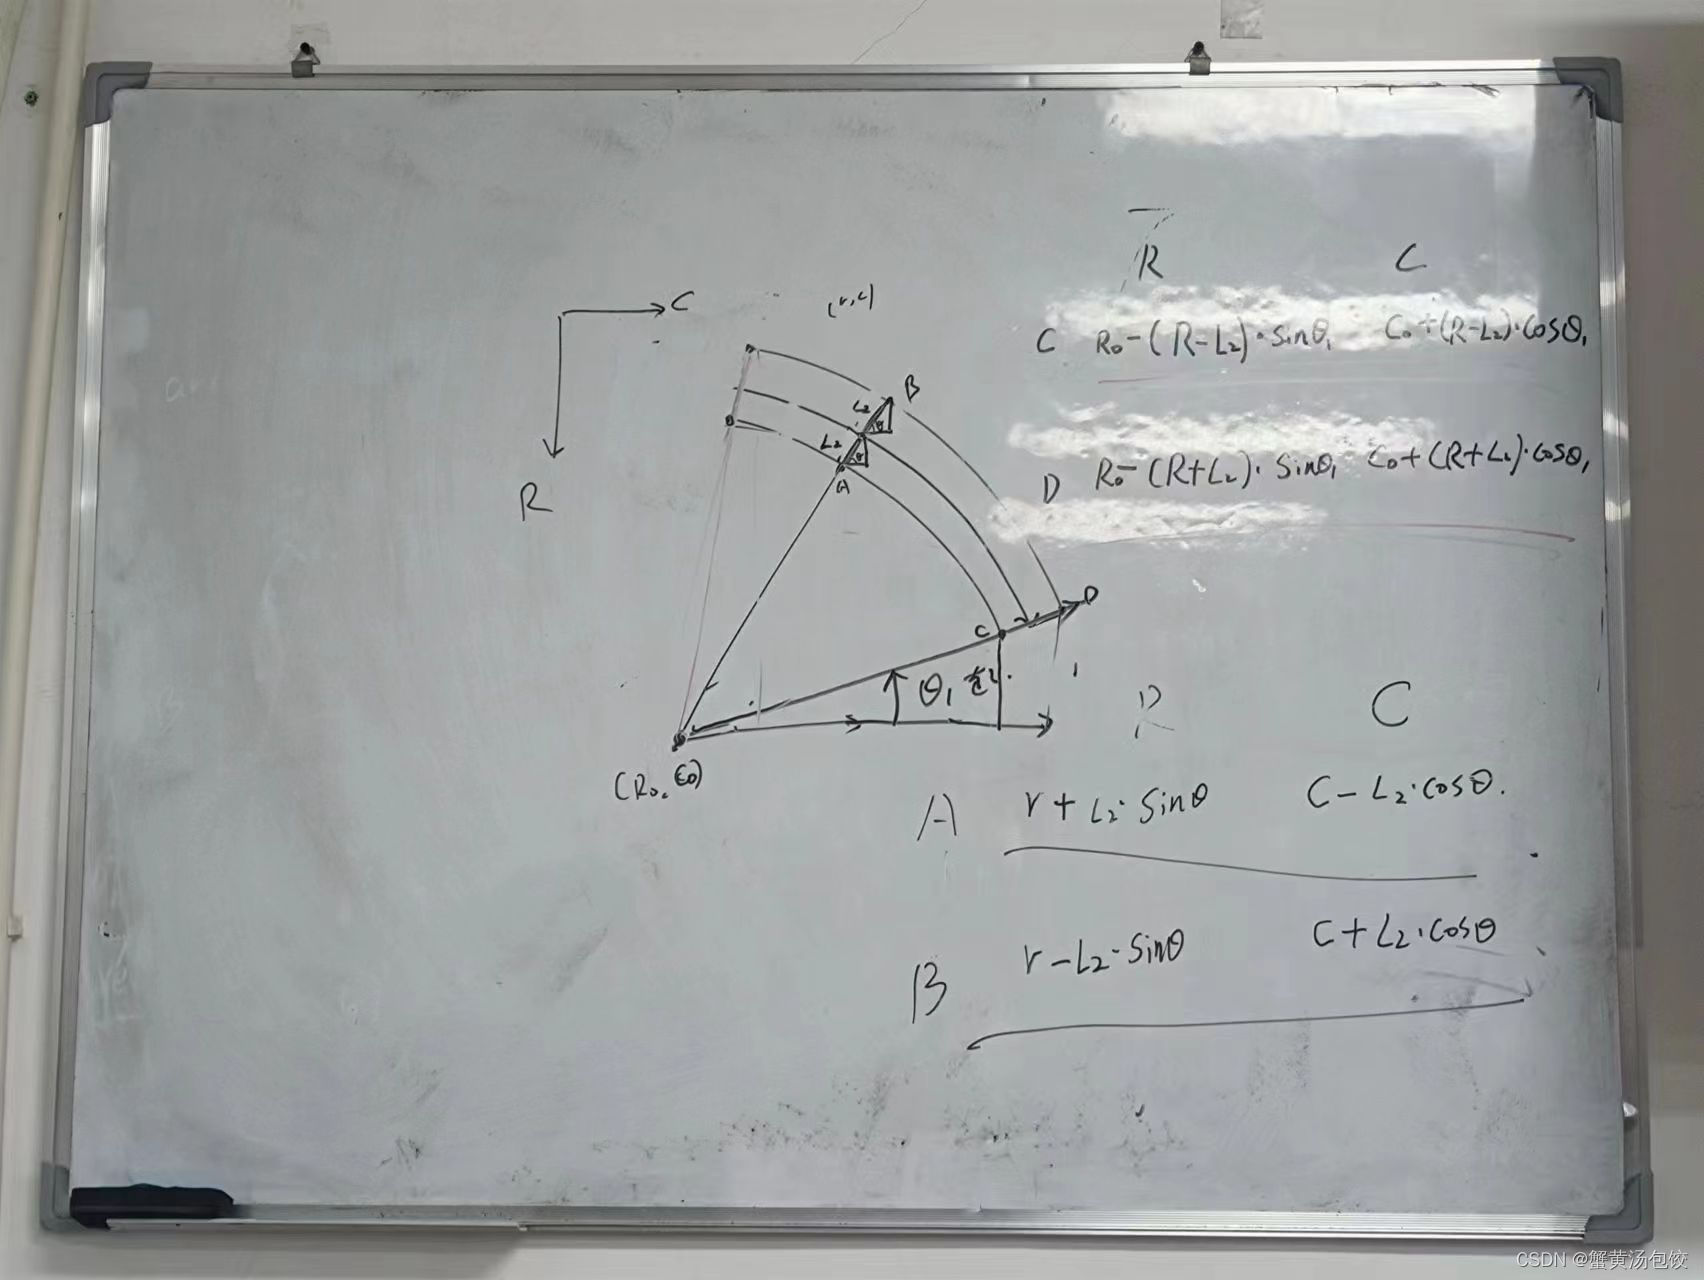 R C
C R₀-(R-L₂)·sinθ₁ C₀+(R-L₂)·cosθ₁
D R₀-(R+L₂)·sinθ₁ C₀+(R+L₂)·cosθ₁
C
(r,c)
R
B
L₂
θ
L₂
θ
A
D
C
θ₁
(R₀,C₀)
R C
A r+L₂·sinθ C-L₂·cosθ.
B r-L₂·sinθ C+L₂·cosθ
CSDN @蟹黄汤包饺